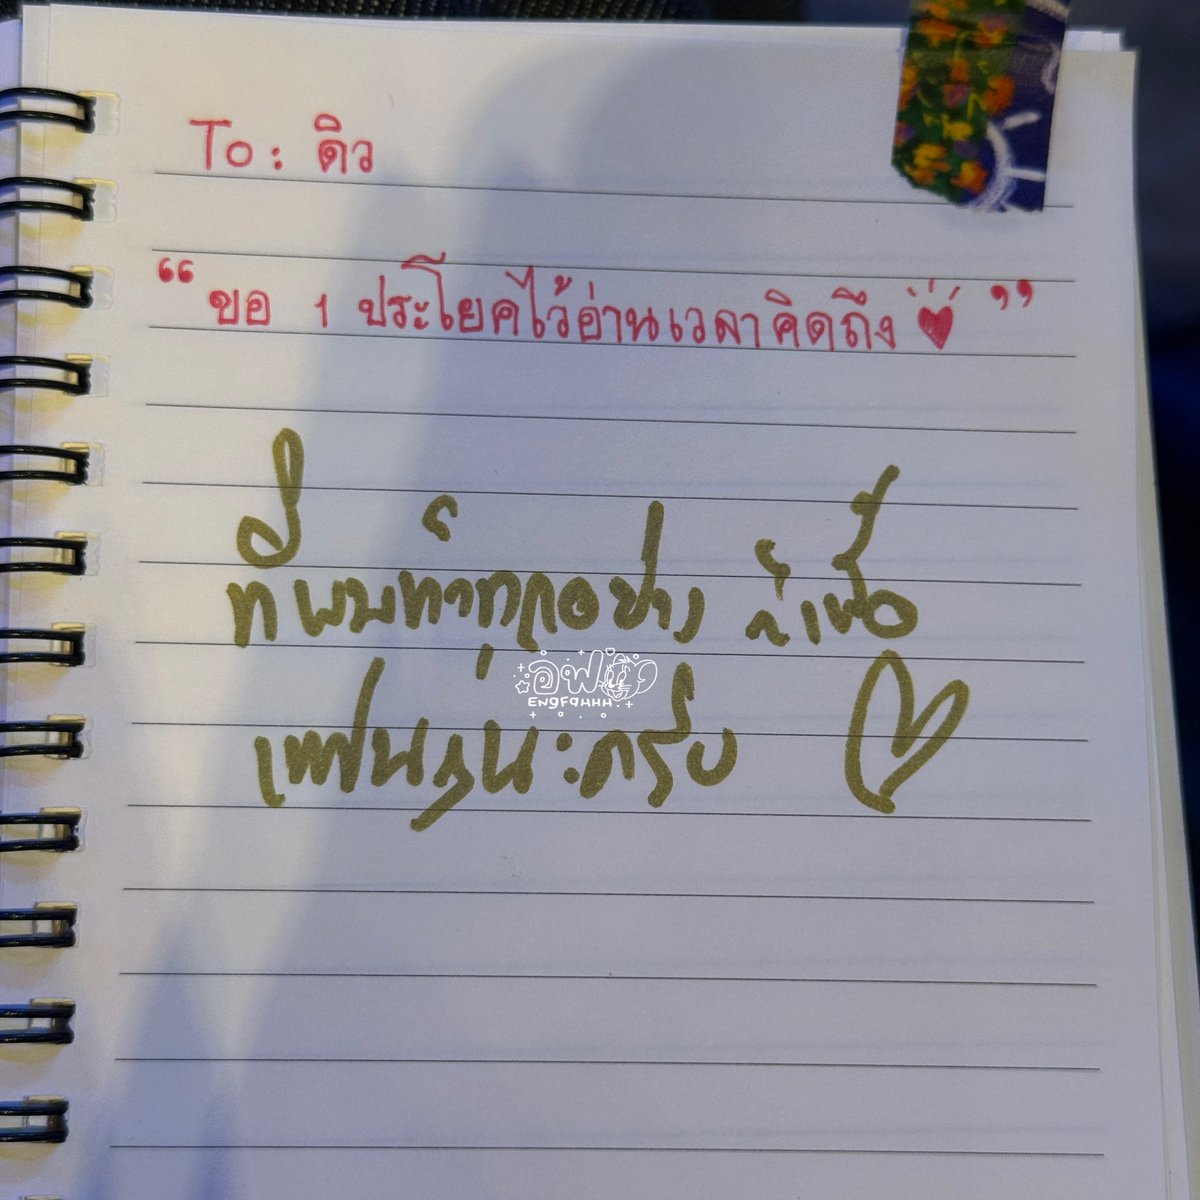 To: ดิว
“ขอ 1 ประโยคไว้อ่านเวลาคิดถึง ♥”
ที่ผมทำทุกอย่าง ก็เพื่อ
อฟ
ENGFAHHH
แฟนๆนะครับ ♡